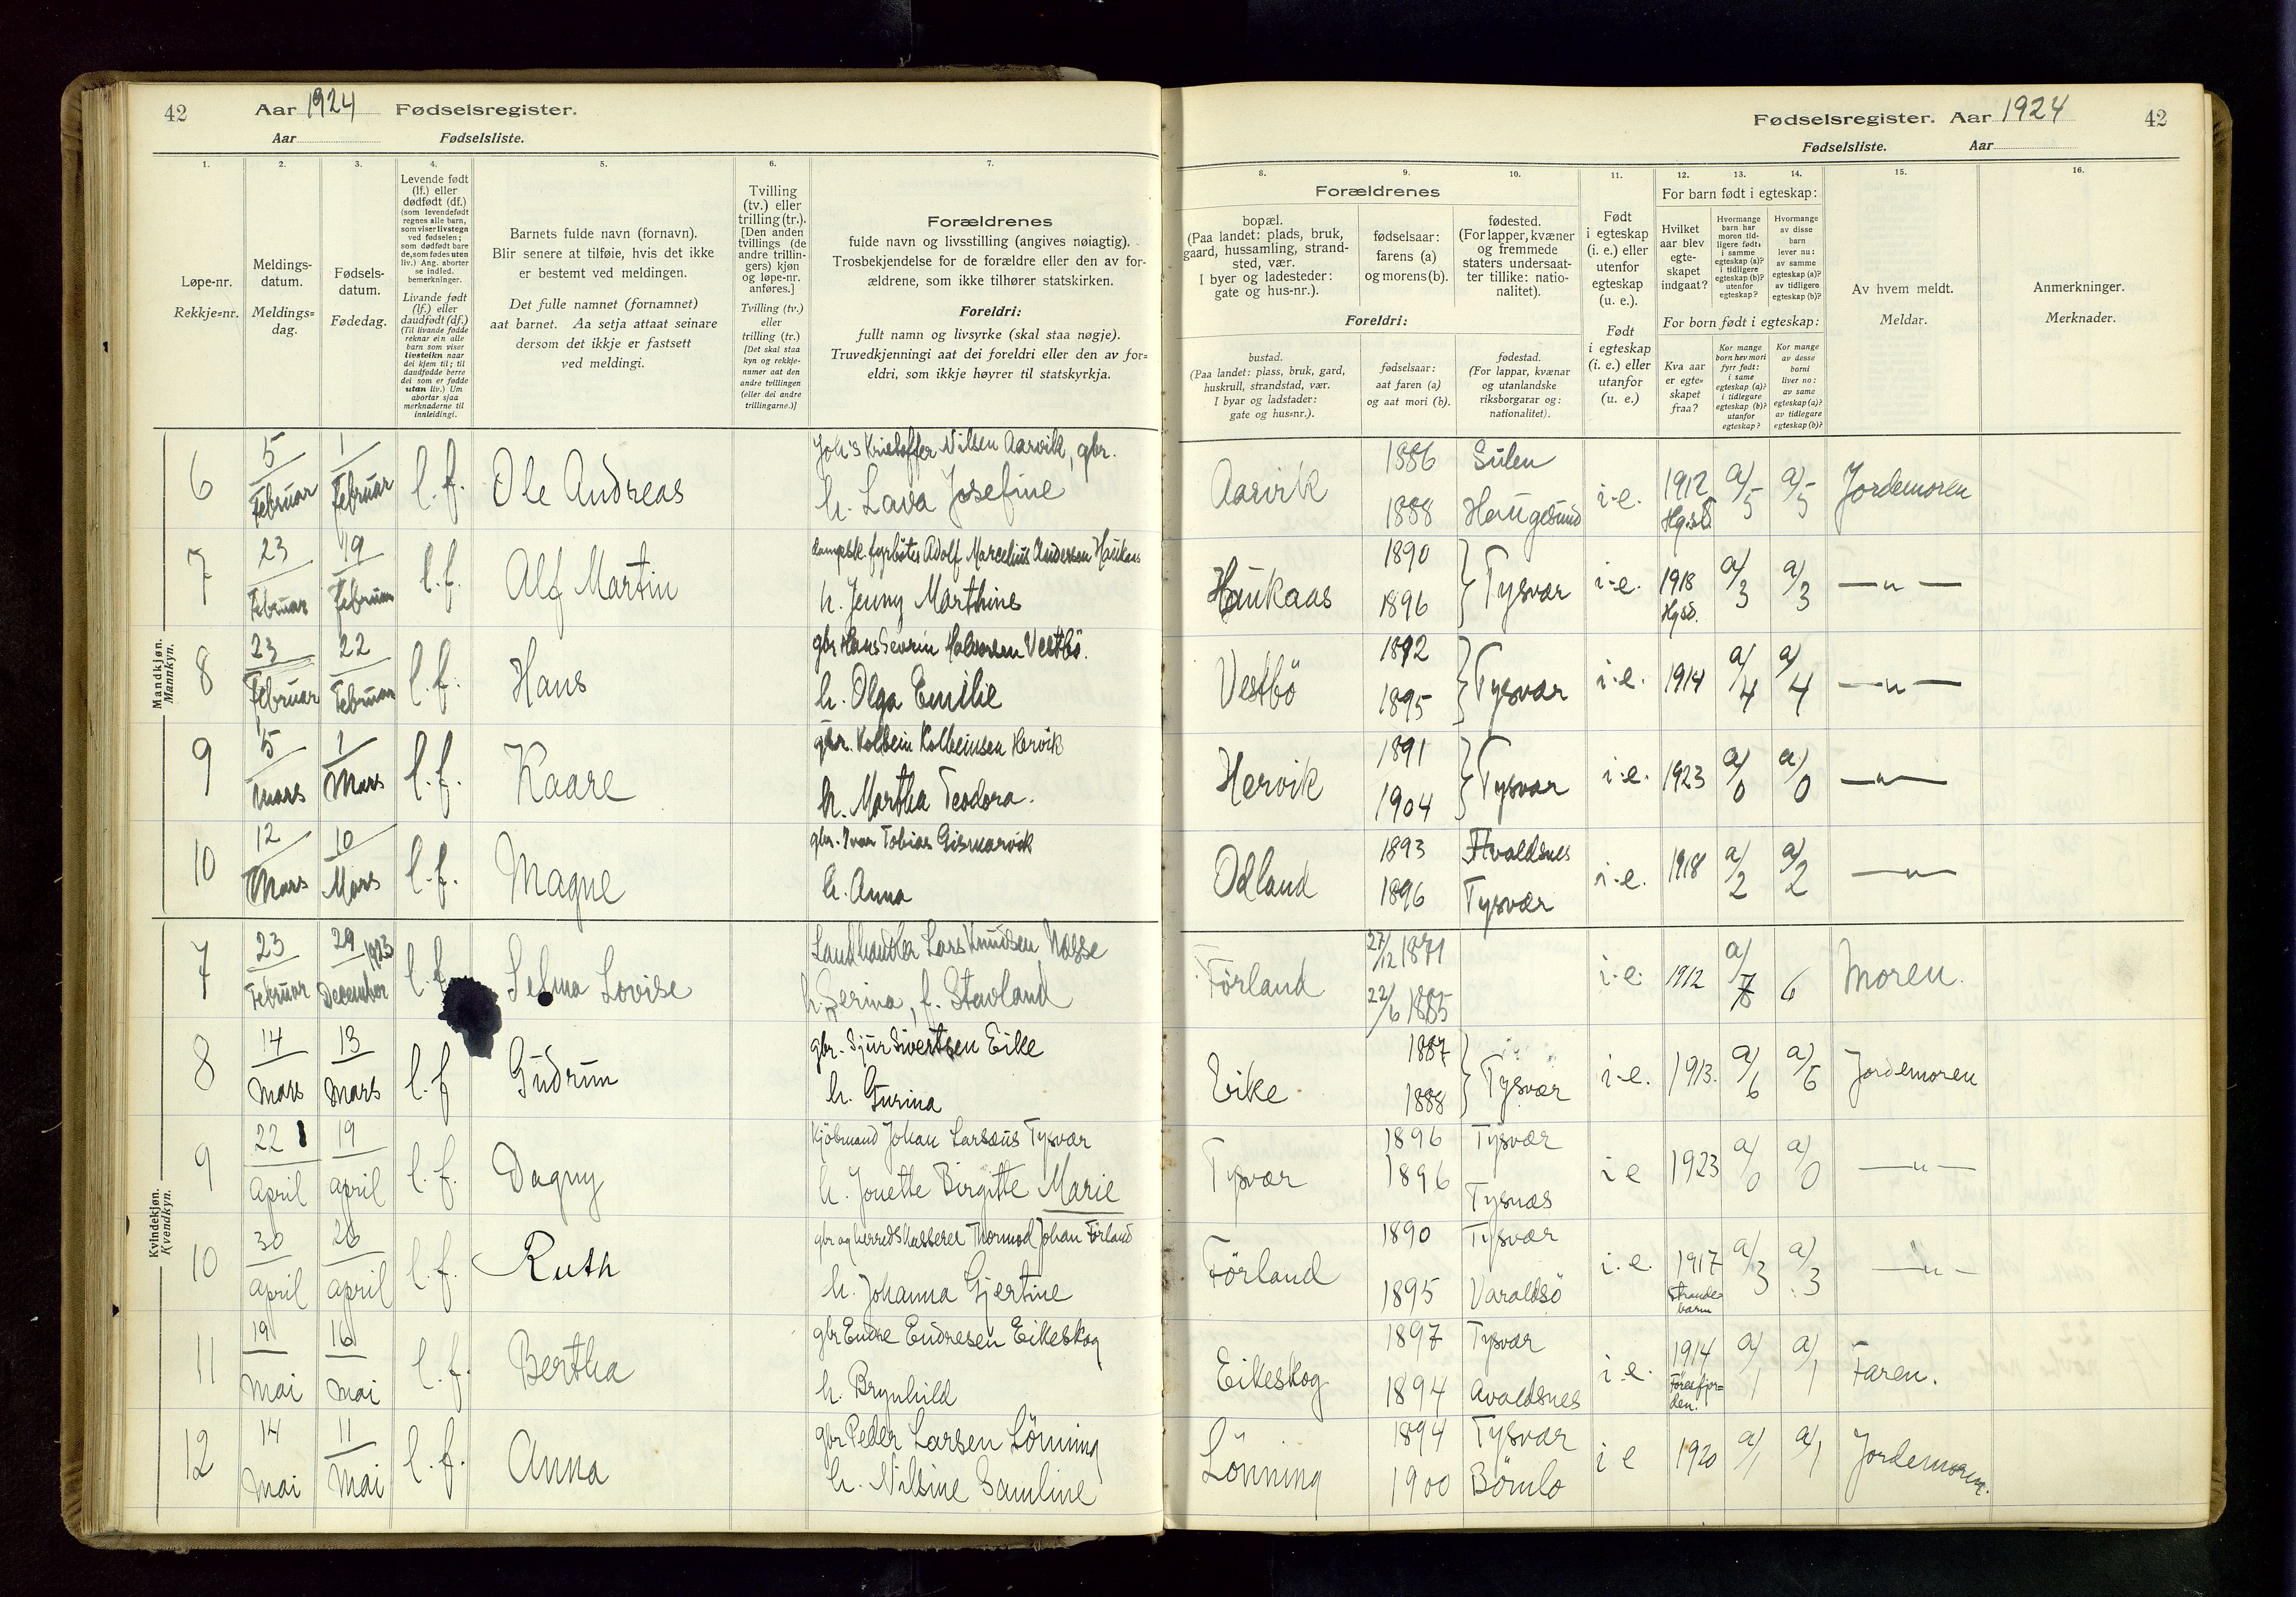 42 Aar 1924 Fødselsregister.
Aar Fødselsliste.
Fødselsregister. Aar 1924 42
Fødselsliste. Aar
1. 2. 3. 4. 5. 6. 7.
Løpe-nr.
Rekkje=nr.
Meldings-
datum.
Meldings=
dag.
Fødsels-
datum.
Fødedag.
Levende født
(lf.) eller
dødfødt (df.)
(som levendefødt
regnes alle barn,
som viser livstegn
ved fødselen;
som dødfødt bare
de, som fødes uten
liv.) Ang. aborter
se indled.
bemerkninger.
Livande født
(lf.) eller
daudfødt (df.)
(Til livande fødde
reknar ein alle
barn som viser
livsteikn naar
dei kjem til; til
daudfødde berre
dei som er fødde
utan liv.) Um
abortar sjaa
merknaderne til
innleidingi.
Barnets fulde navn (fornavn).
Blir senere at tilføie, hvis det ikke
er bestemt ved meldingen.
Det fulle namnet (fornamnet)
aat barnet. Aa setja attaat seinare
dersom det ikkje er fastsett
ved meldingi.
Tvilling
(tv.) eller
trilling (tr.).
[Den anden
tvillings (de
andre trillin-
gers) kjøn
og løpe-nr.
anføres.]
Tvilling (tv.)
eller
trilling (tr.)
[Det skal staa
kyn og rekkje-
numer aat den
andre tvillingen
(eller dei andre
trillingarne.)]
Forældrenes
fulde navn og livsstilling (angives nøiagtig).
Trosbekjendelse for de forældre eller den av for-
ældrene, som ikke tilhører statskirken.
Foreldri:
fullt namn og livsyrke (skal staa nøgje).
Truvedkjenningi aat dei foreldri eller den av for=
eldri, som ikkje høyrer til statskyrkja.
8. 9. 10. 11. 12. 13. 14. 15. 16.
Forældrenes
bopæl.
(Paa landet: plads, bruk,
gaard, hussamling, strand-
sted, vær.
I byer og ladesteder:
gate og hus-nr.).
fødselsaar:
farens (a)
og morens (b).
fødested.
(For lapper, kvæner
og fremmede
staters undersaat-
ter tillike: natio-
nalitet).
Foreldri:
bustad.
(Paa landet: plass, bruk, gard,
huskrull, strandstad, vær.
I byar og ladstader:
gate og hus=nr.).
fødselsaar:
aat faren (a)
og aat mori (b).
fødestad.
(For lappar, kvænar
og utanlandske
riksborgarar og:
nationalitet).
Født
i egteskap
(i. e.) eller
utenfor
egteskap
(u. e.).
Født
i egteskap
(i. e.) eller
utanfor
(u. e.)
For barn født i egteskap:
Hvilket
aar blev
egte-
skapet
indgaat?
Hvormange
barn har
moren tid-
ligere født:
i samme
egteskap (a)?
i tidligere
egteskap (b)?
utenfor
egteskap?
Hvormange
av disse
barn
lever nu:
av samme
egteskap (a)?
av tidligere
egteskap (b)?
For born født i egteskap:
Kva aar
er egte=
skapet
fraa?
Kor mange
born hev mori
fyrr født:
i same
egteskap (a)?
i tidlegare
egteskap (b)?
utanfor
egteskap?
Kor mange
av desse
borni
liver no:
av same
egteskap (a)?
av tidlegare
egteskap (b)?
Av hvem meldt.
Meldar.
Anmerkninger.
Merknader.
Mandkjøn.
Mannkyn.
6 5 Februar 1 Februar l.f. Ole Andreas Joh's Kristoffer Nilsen Aarvik, gbr.
h. Lava Josefine
Aarvik 1886 Sulen
1888 Haugesund i.e. 1912 Hgsd. a/5 a/5 Jordemoren
7 23 Februar 19 Februar l.f. Alf Martin dampsk. fyrbøter Adolf Marcelius Andersen Haukaas
h. Jenny Marthine
Haukaas 1890
1896 Tysvær i.e. 1918 Hgsd. a/3 a/3 —"—
8 23 Februar 22 Februar l.f. Hans gbr Hans Sevrin Halvorsen Vestbö.
h. Olga Emilie
Vestbö 1892
1895 Tysvær i.e. 1914 a/4 a/4 —"—
9 5 Mars 1 Mars l.f. Kaare gbr. Kolbein Kolbeinsen Hervik
h. Martha Teodora.
Hervik 1891
1904 Tysvær i.e. 1923 a/0 a/0 —"—
10 12 Mars 10 Mars l.f. Magne gbr. Ivar Tobias Gismarvik
h. Anna
Odland 1893 Avaldsnes
1896 Tysvær i.e. 1918 a/2 a/2 —"—
Kvindekjøn.
Kvendkyn.
7 23 Februar 29 December 1923 l.f. Selma Lovise Landhandler Lars Knudsen Nasse
h. Serina, f. Stavland
Førland 27/12 1871
22/6 1885 i.e. 1912 a/7 6 Moren.
8 14 Mars 13 Mars l.f. Gudrun gbr. Sjur Sivertsen Eike
h. Gurina
Eike 1887
1888 Tysvær i.e. 1913. a/6 a/6 Jordemoren
9 22 April 19 April l.f. Dagny Kjöbmand Johan Larsæus Tysvær
h. Jonette Birgitte Marie
Tysvær 1896 Tysvær
1896 Tysnæs i e 1923 a/0 a/0 —"—
10 30 April 26 April l.f. Ruth gbr og herredskasserer Thormod Johan Förland
h. Johanna Gjertine
Förland 1890 Tysvær
1895 Varaldsö i.e. 1917 Strande=
barm a/3 a/3 —"—
11 19 Mai 16 Mai l.f. Bertha gbr Endre Endresen Eikeskog
h. Brynhild
Eikeskog 1897 Tysvær
1894 Avaldsnes i.e. 1914 Föresfjor=
den. a/1 a/1 Faren.
12 14 Mai 11 Mai l.f. Anna gbr Peder Larsen Lönning
h. Nilsine Samline
Lönning 1894 Tysvær
1900 Bömlo i e 1920 a/1 a/1 Jordemoren.